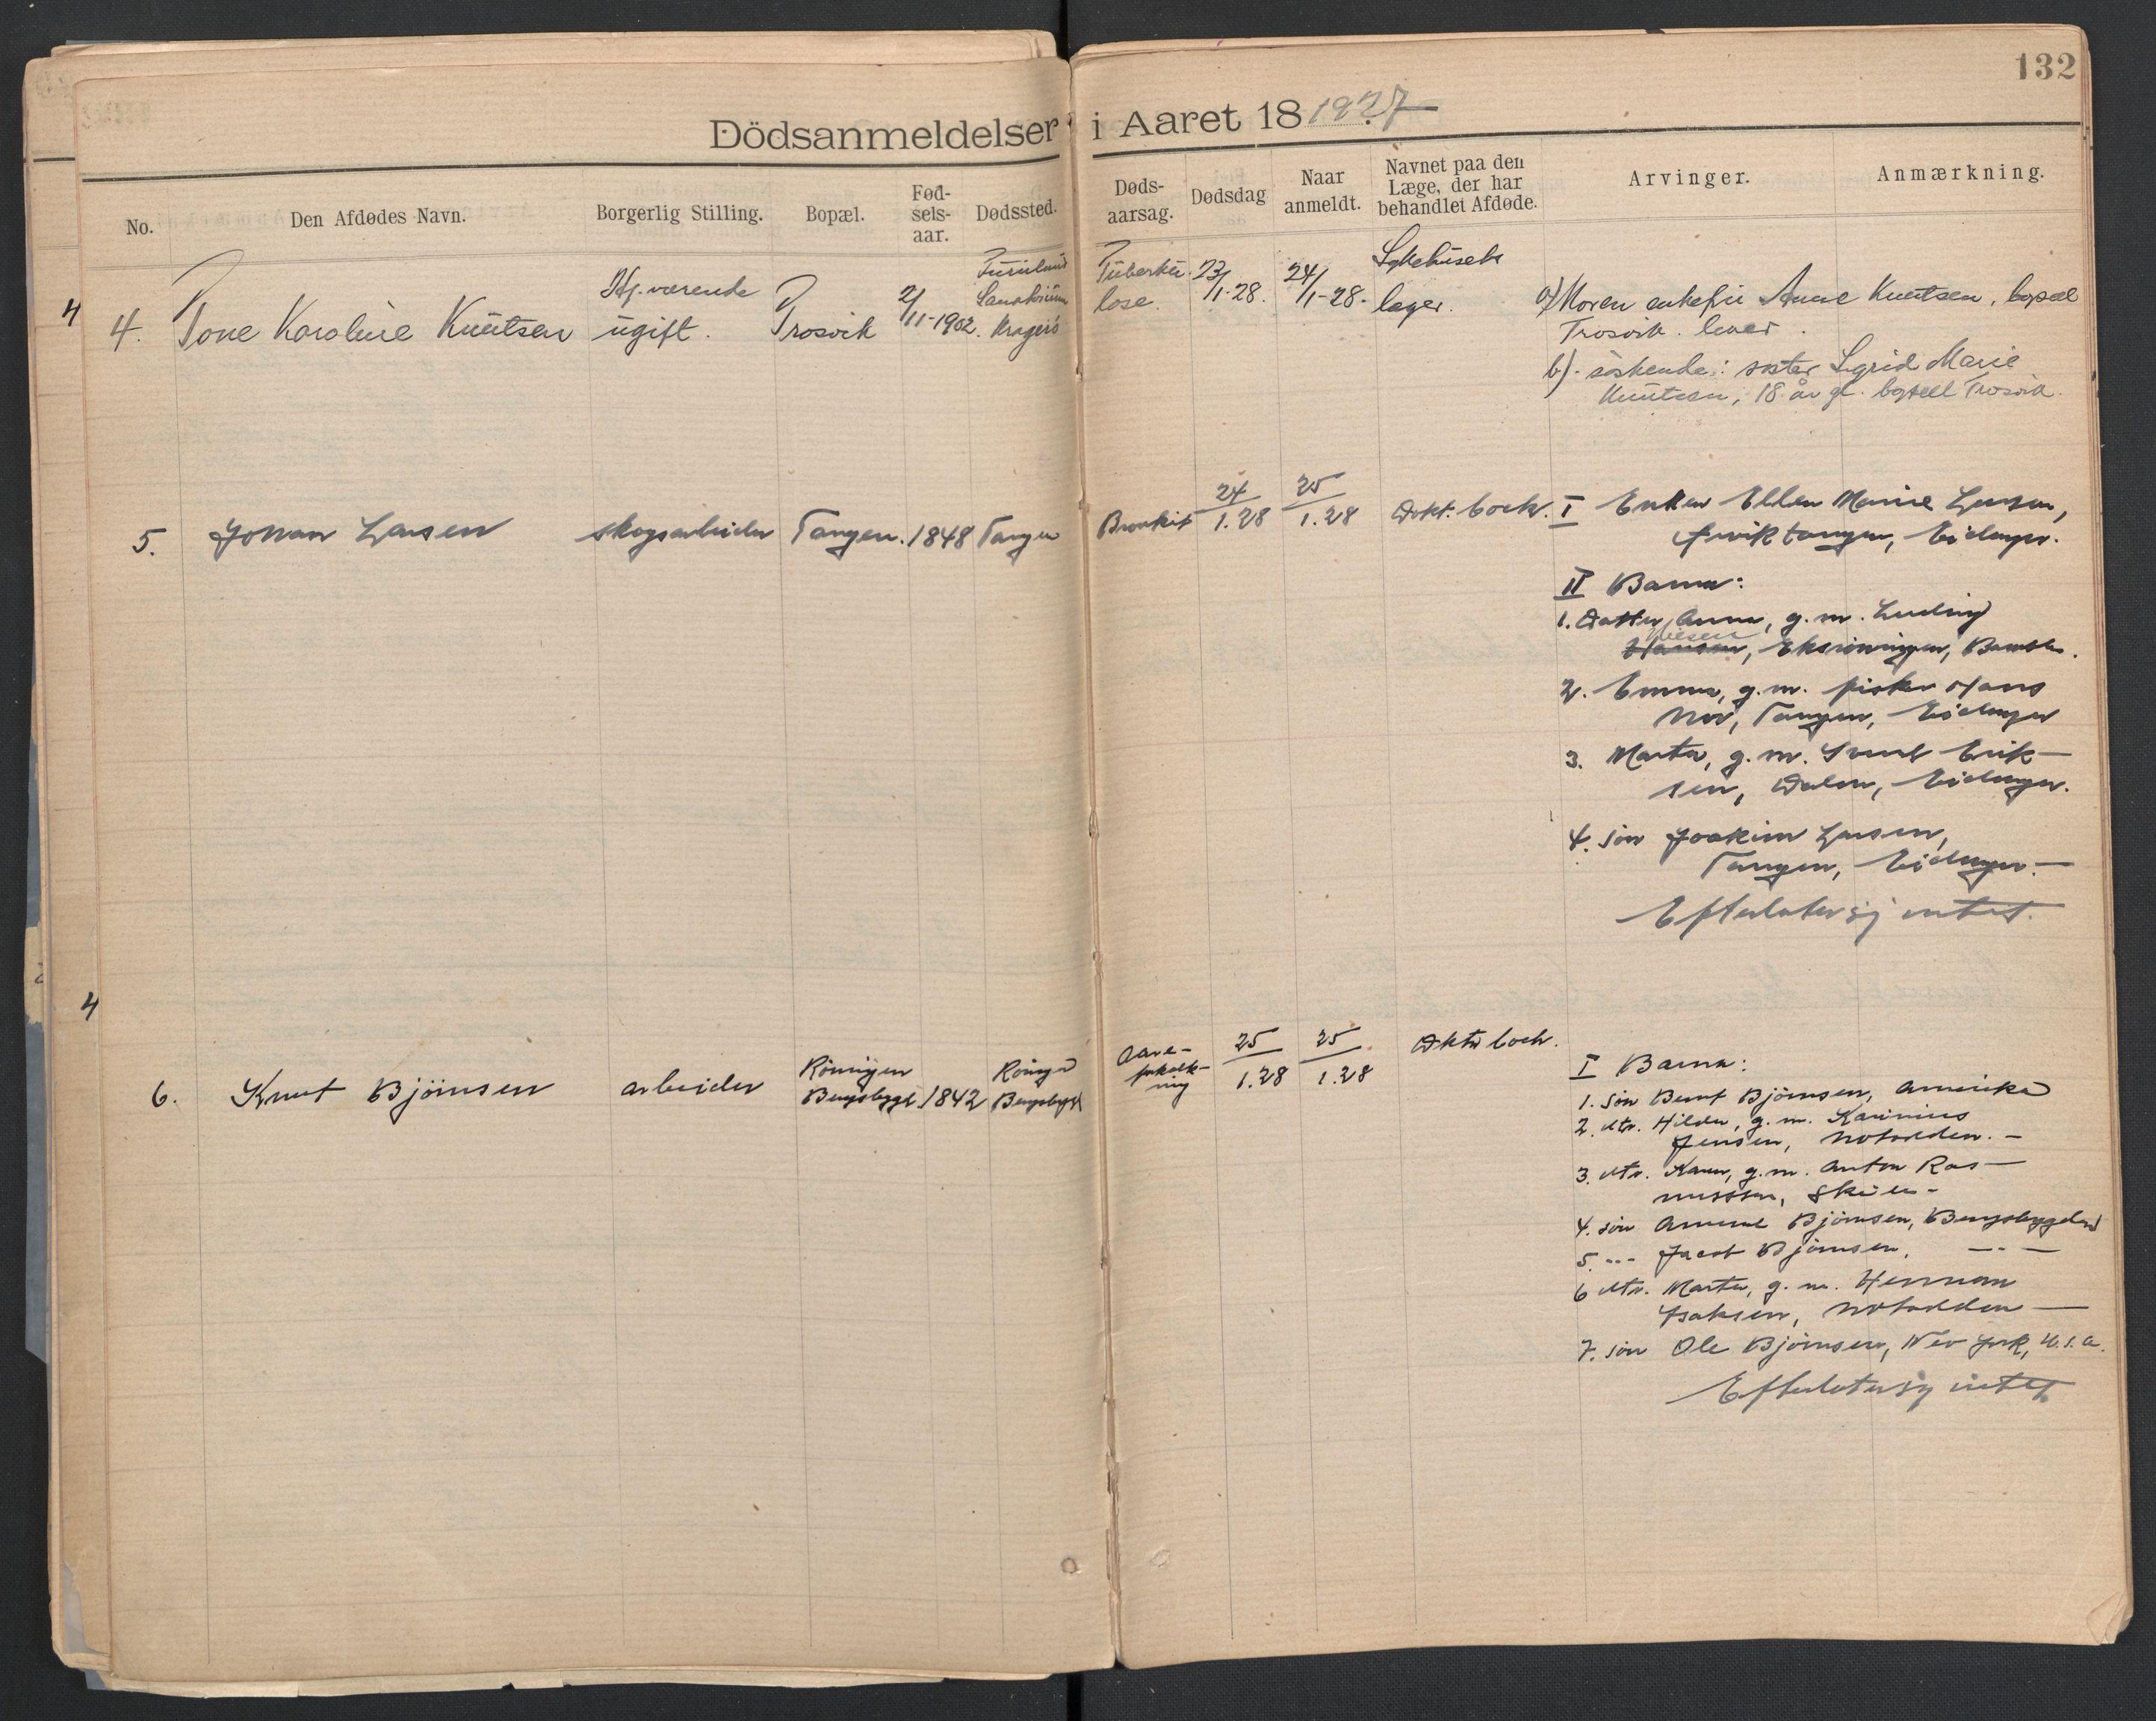 132
Dödsanmeldelser i Aaret 18 1927
No.
Den Afdødes Navn.
Borgerlig Stilling.
Bopæl.
Fød-
sels-
aar.
Dødssted.
Døds-
aarsag.
Dødsdag
Naar
anmeldt.
Navnet paa den
Læge, der har
behandlet Afdøde.
Arvinger.
Anmærkning.
4
4. Tone Karoline Knutsen
Hj. værende
ugift.
Trosvik
2/11-1902.
Furulund
Sanatorium
Kragerö
Tuberku-
lose.
23/1-28.
24/1-28.
Sykehusets
læger.
a) Moren enkefru Anne Knutsen, bopæl
Trosvik. lever.
b). søskende: søster Sigrid Marie
Knutsen, 18 år gl. bopæll Trosvik.
5. Johan Larsen
skogsarbeider
Tangen.
1848
Tangen
Bronkit
24/1.28
25/1.28
Dokt. Coch.
I Enken Ellen Marie Larsen,
tangen, Eidanger.
II Barna:
1. Datter Anna, g. m. Ludvig
Nilsen
Hansen, Bamble.
2. Emma, g. m. fisker Hans
Moe, Tangen, Eidanger
3. Marta, g. m. Erik-
sen, Dalen, Eidanger.
4. søn Joakim Larsen,
Tangen, Eidanger.-
Efterlater sig intet.
4
6. Knut Björnsen
arbeider
Röningen
Bergsbygd.
1842
Röningen
Bergsbygd
Aare-
forkalk-
ning
25/1.28
25/1.28
Doktor Coch.
I Barna:
1. søn Bernt Björnsen, Amerika
2. dtr. Hilda, g. m. Karinius
Jensen, Notodden. -
3. dtr. Karen, g. m. Anton Ras-
mussen, Skien -
4. søn Amund Björnsen, Bergsbygden
5. -"- Jacob Björnsen, -"-
6 dtr. Marta, g. m. Herman
Isaksen, Notodden -
7. søn Ole Björnsen, New York, U.S.A.
Efterlater sig intet